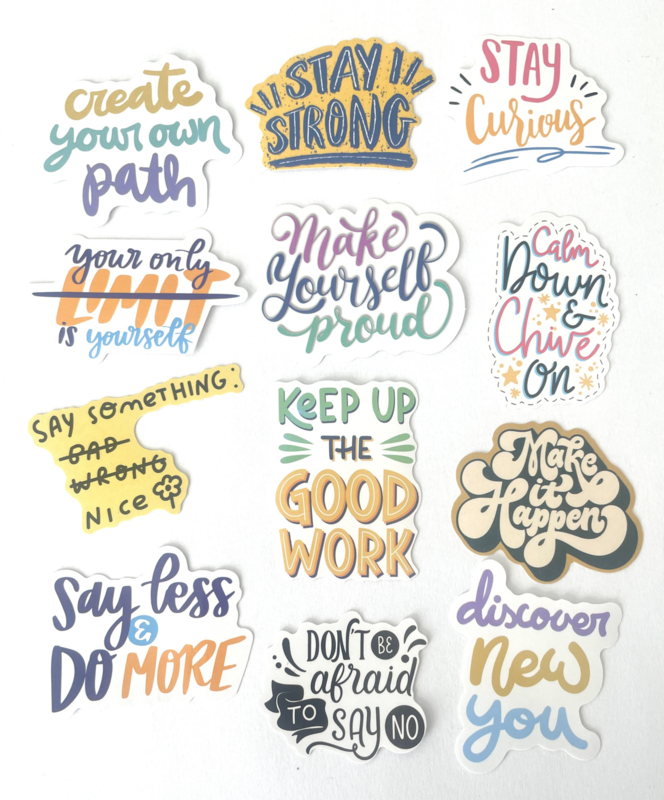 create
your own
path
STAY
STRONG
STAY
Curious
your only
LIMIT
is yourself
Make
Yourself
proud
Calm
Down
&
Chive
On
SAY SOMETHING:
BAD
WRONG
NICE
KEEP UP
THE
GOOD
WORK
Make
it
Happen
Say less
&
DO MORE
DON'T BE
afraid
TO SAY NO
discover
new
you